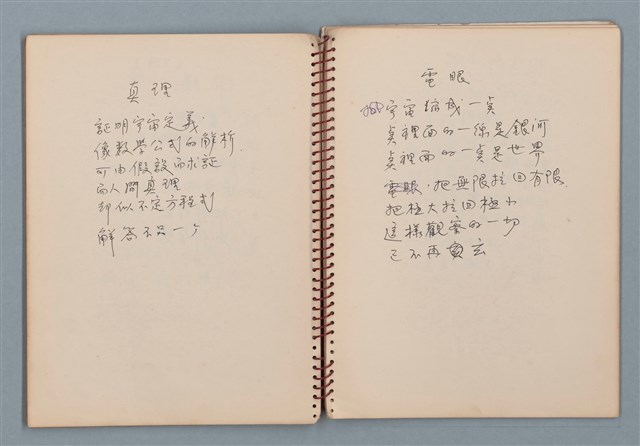 真理
証明宇宙定義
像數學公式的解析
可由假設而求証
而人間真理
却似不定方程式
解答不只一个
電眼
把宇宙縮成一点
点裡面的一線是銀河
点裡面的一点是世界
電眼，把無限拉回有限
把極大拉回極小
這樣觀察的一切
已不再玄